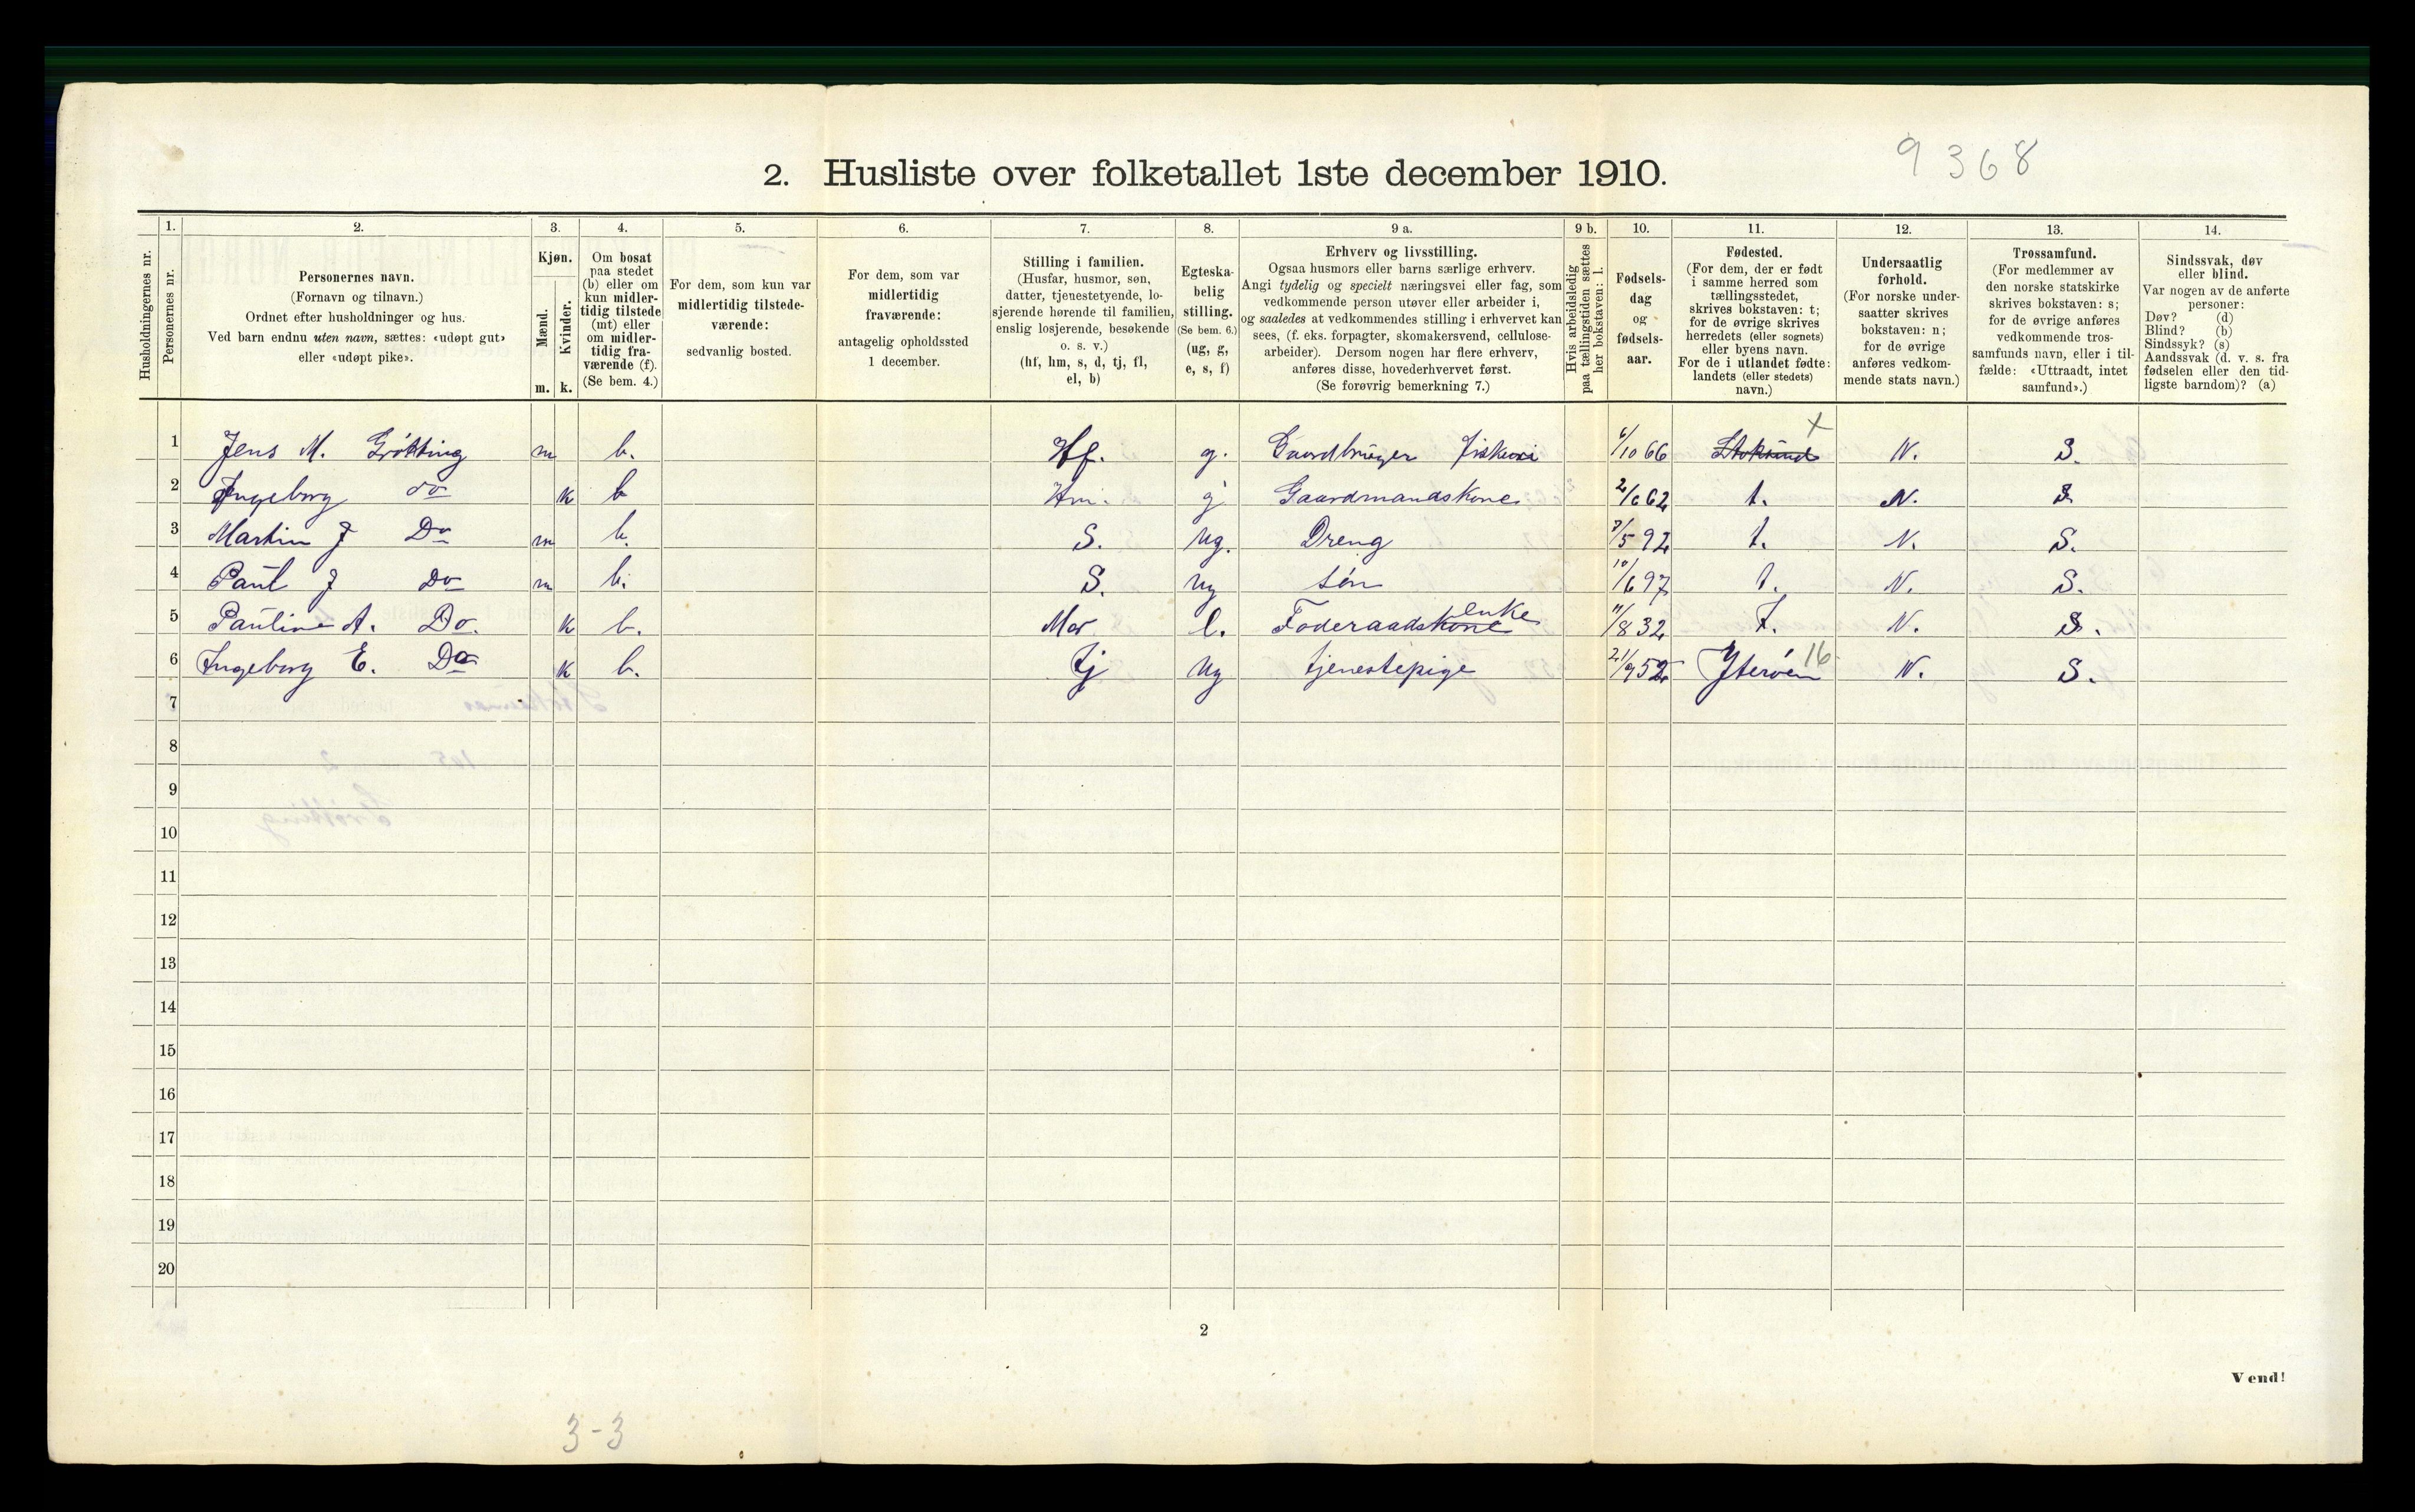 9368
2. Husliste over folketallet 1ste december 1910.
1. 2. 3. 4. 5. 6. 7. 8. 9 a. 9 b. 10. 11. 12. 13. 14.
Husholdningernes nr.
Personernes nr.
Personernes navn.
(Fornavn og tilnavn.)
Ordnet efter husholdninger og hus.
Ved barn endnu uten navn, sættes: «udøpt gut»
eller «udøpt pike».
Kjøn.
Mænd.
Kvinder.
m. k.
Om bosat
paa stedet
(b) eller om
kun midler-
tidig tilstede
(mt) eller
om midler-
tidig fra-
værende (f).
(Se bem. 4.)
For dem, som kun var
midlertidig tilstede-
værende:
sedvanlig bosted.
For dem, som var
midlertidig
fraværende:
antagelig opholdssted
1 december.
Stilling i familien.
(Husfar, husmor, søn,
datter, tjenestetyende, lo-
sjerende hørende til familien,
enslig losjerende, besøkende
o. s. v.)
(hf, hm, s, d, tj, fl,
el, b)
Egteska-
belig
stilling.
(Se bem. 6.)
(ug, g,
e, s, f)
Erhverv og livsstilling.
Ogsaa husmors eller barns særlige erhverv.
Angi tydelig og specielt næringsvei eller fag, som
vedkommende person utøver eller arbeider i,
og saaledes at vedkommendes stilling i erhvervet kan
sees, (f. eks. forpagter, skomakersvend, cellulose-
arbeider). Dersom nogen har flere erhverv,
anføres disse, hovederhvervet først.
(Se forøvrig bemerkning 7.)
Hvis arbeidsledig
paa tællingstiden sættes
her bokstaven: l.
Fødsels-
dag
og
fødsels-
aar.
Fødested.
(For dem, der er født
i samme herred som
tællingsstedet,
skrives bokstaven: t;
for de øvrige skrives
herredets (eller sognets)
eller byens navn.
For de i utlandet fødte:
landets (eller stedets)
navn.)
Undersaatlig
forhold.
(For norske under-
saatter skrives
bokstaven: n;
for de øvrige
anføres vedkom-
mende stats navn.)
Trossamfund.
(For medlemmer av
den norske statskirke
skrives bokstaven: s;
for de øvrige anføres
vedkommende tros-
samfunds navn, eller i til-
fælde: «Uttraadt, intet
samfund».)
Sindssvak, døv
eller blind.
Var nogen av de anførte
personer:
Døv? (d)
Blind? (b)
Sindssyk? (s)
Aandssvak (d. v. s. fra
fødselen eller den tid-
ligste barndom)? (a)
1 Jens M. Grötting m b. Hf. g. Gaardbruger Fiskeri 6/10 66 Stoksund x N. S.
2 Ingeborg do k b Hm. g Gaardmandskone 2/6 62 t. N. S
3 Martin J Do m b. S. ug. Dreng 7/5 92 t. N. S.
4 Paul J Do m b. S. ug søn 10/6 97 t. N. S.
5 Pauline A. Do. k b. Mor e. Foderaadskone enke 11/8 32 t. N. S.
6 Ingeborg E. Do k b. tj ug tjenestepige 21/9 52 Yterøen 16 N. S.
7
8
9
10
11
12
13
14
15
16
17
18
19
20
2
Vend!
3-3